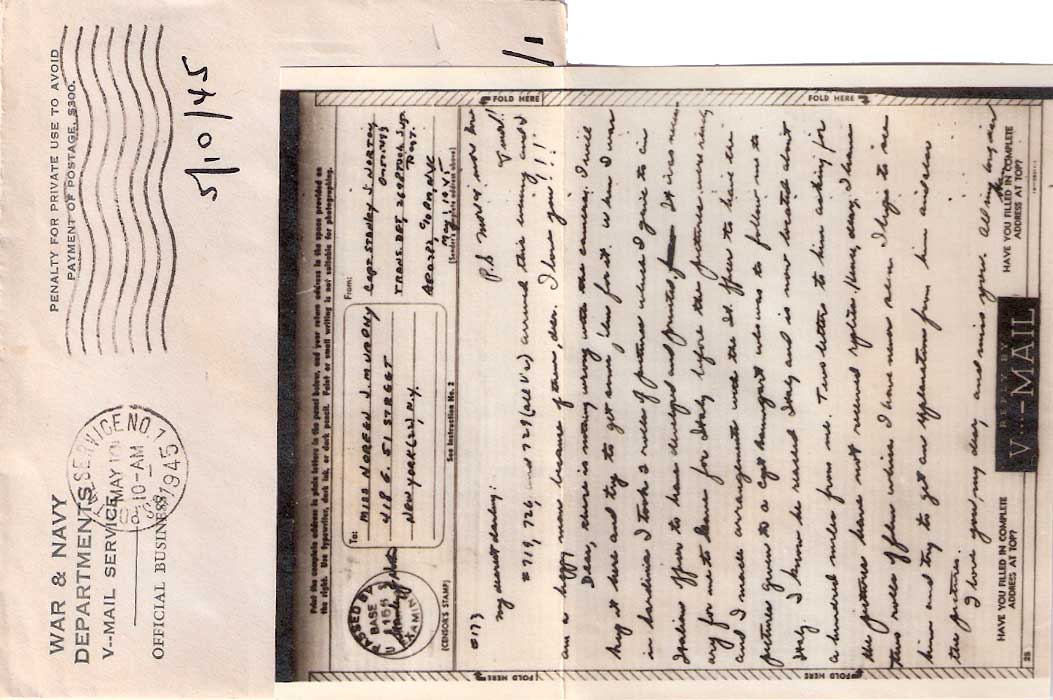 WAR & NAVY
DEPARTMENTS
V--MAIL SERVICE
OFFICIAL BUSINESS
U.S. POSTAL SERVICE NO. 1
MAY 10
10-AM
1945
PENALTY FOR PRIVATE USE TO AVOID
PAYMENT OF POSTAGE, $300.
5/10/45
FOLD HERE
FOLD HERE
Print the complete address in plain letters in the panel below, and your return address in the space provided on
the right. Use typewriter, dark ink, or dark pencil. Faint or small writing is not suitable for photographing.
PASSED BY
BASE
EXAMINER
(CENSOR'S STAMP)
To:
MISS NOREEN J. MURPHY
418 E. 51 STREET
NEW YORK (22), N.Y.
See Instruction No. 2
From:
CAPT. STANLEY J. NORTON
TRANS. DET, 2689 TECH. SUP.
c/o PM, NYC
May 1, 1945
(Sender's complete address above)
#173
My dearest darling:
P.S. movies now
Yours!
#719, 726, and 729 (all V's) arrived this evening and I
am a happy man because of them, dear. I love you!!!
Dear, there is nothing wrong with the camera. I will
buy it here and try to get some film for it. When I was
in Sardinia I took 2 rolls of pictures which I gave to an
Italian officer to have developed and printed. It was necess-
ary for me to leave for Italy before the pictures were ready
and I made arrangements with the It. officer to have the
pictures given to a Capt who was to follow me to
Italy. I know he reached Italy and is now located about
a hundred miles from me. Two letters to him asking for
the pictures have not received replies. Hence, dear, I have
two rolls of film which I have never seen. I hope to see
him and try to get an explanation from him and also
the pictures.
I love you, my dear, and miss you. All my love dear
HAVE YOU FILLED IN COMPLETE
ADDRESS AT TOP?
REPLY BY
V--MAIL
HAVE YOU FILLED IN COMPLETE
ADDRESS AT TOP?
25
FOLD HERE
FOLD HERE